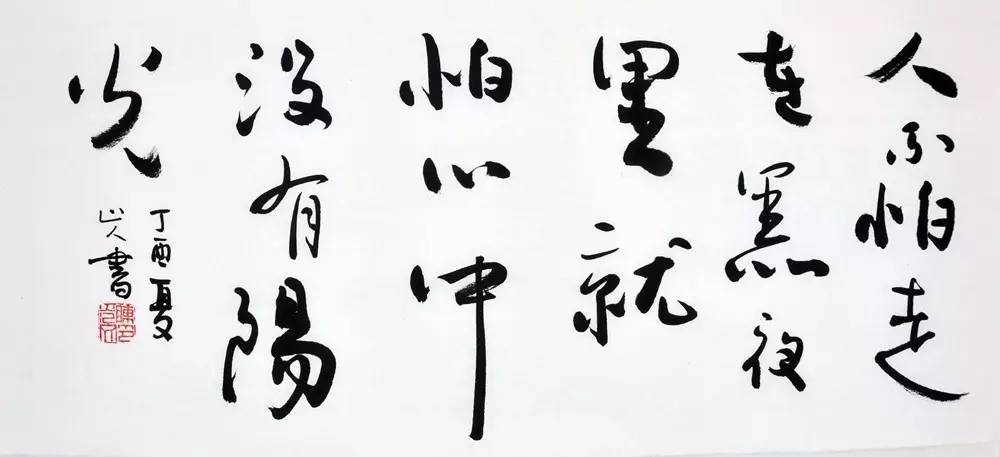 人不怕走
在黑夜
里就
怕心中
没有陽
光
丁酉夏
山人書